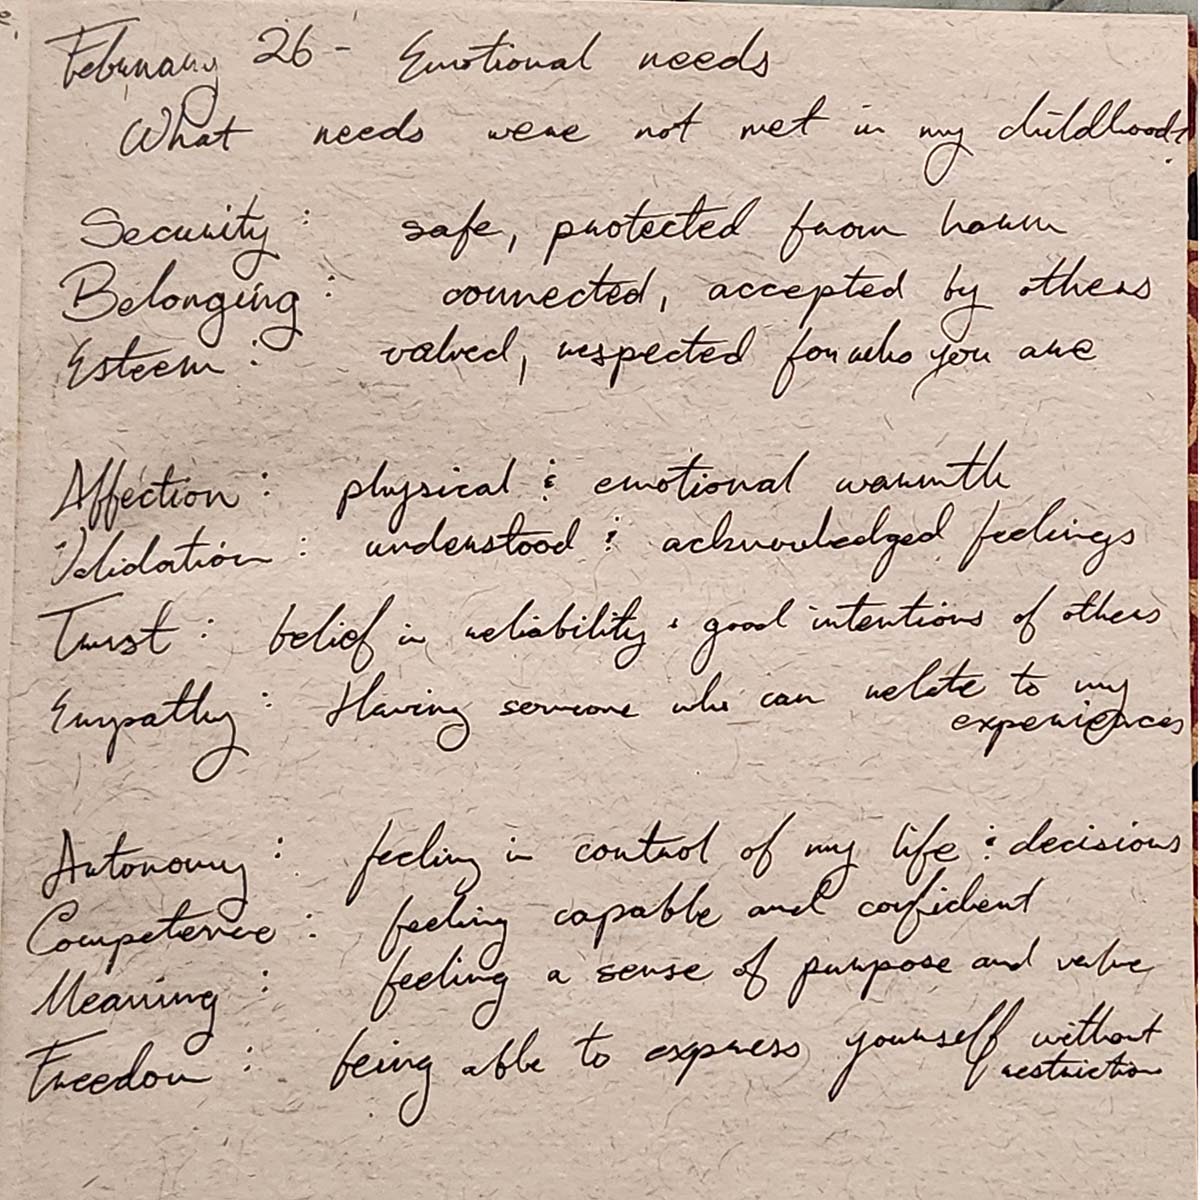 February 26 - Emotional needs
What needs were not met in my childhood?
Security: safe, protected from harm
Belonging: connected, accepted by others
Esteem: valued, respected for who you are
Affection: physical & emotional warmth
Validation: understood & acknowledged feelings
Trust: belief in reliability & good intentions of others
Empathy: Having someone who can relate to my
experiences
Autonomy: feeling in control of my life & decisions
Competence: feeling capable and confident
Meaning: feeling a sense of purpose and value
Freedom: being able to express yourself without
restriction